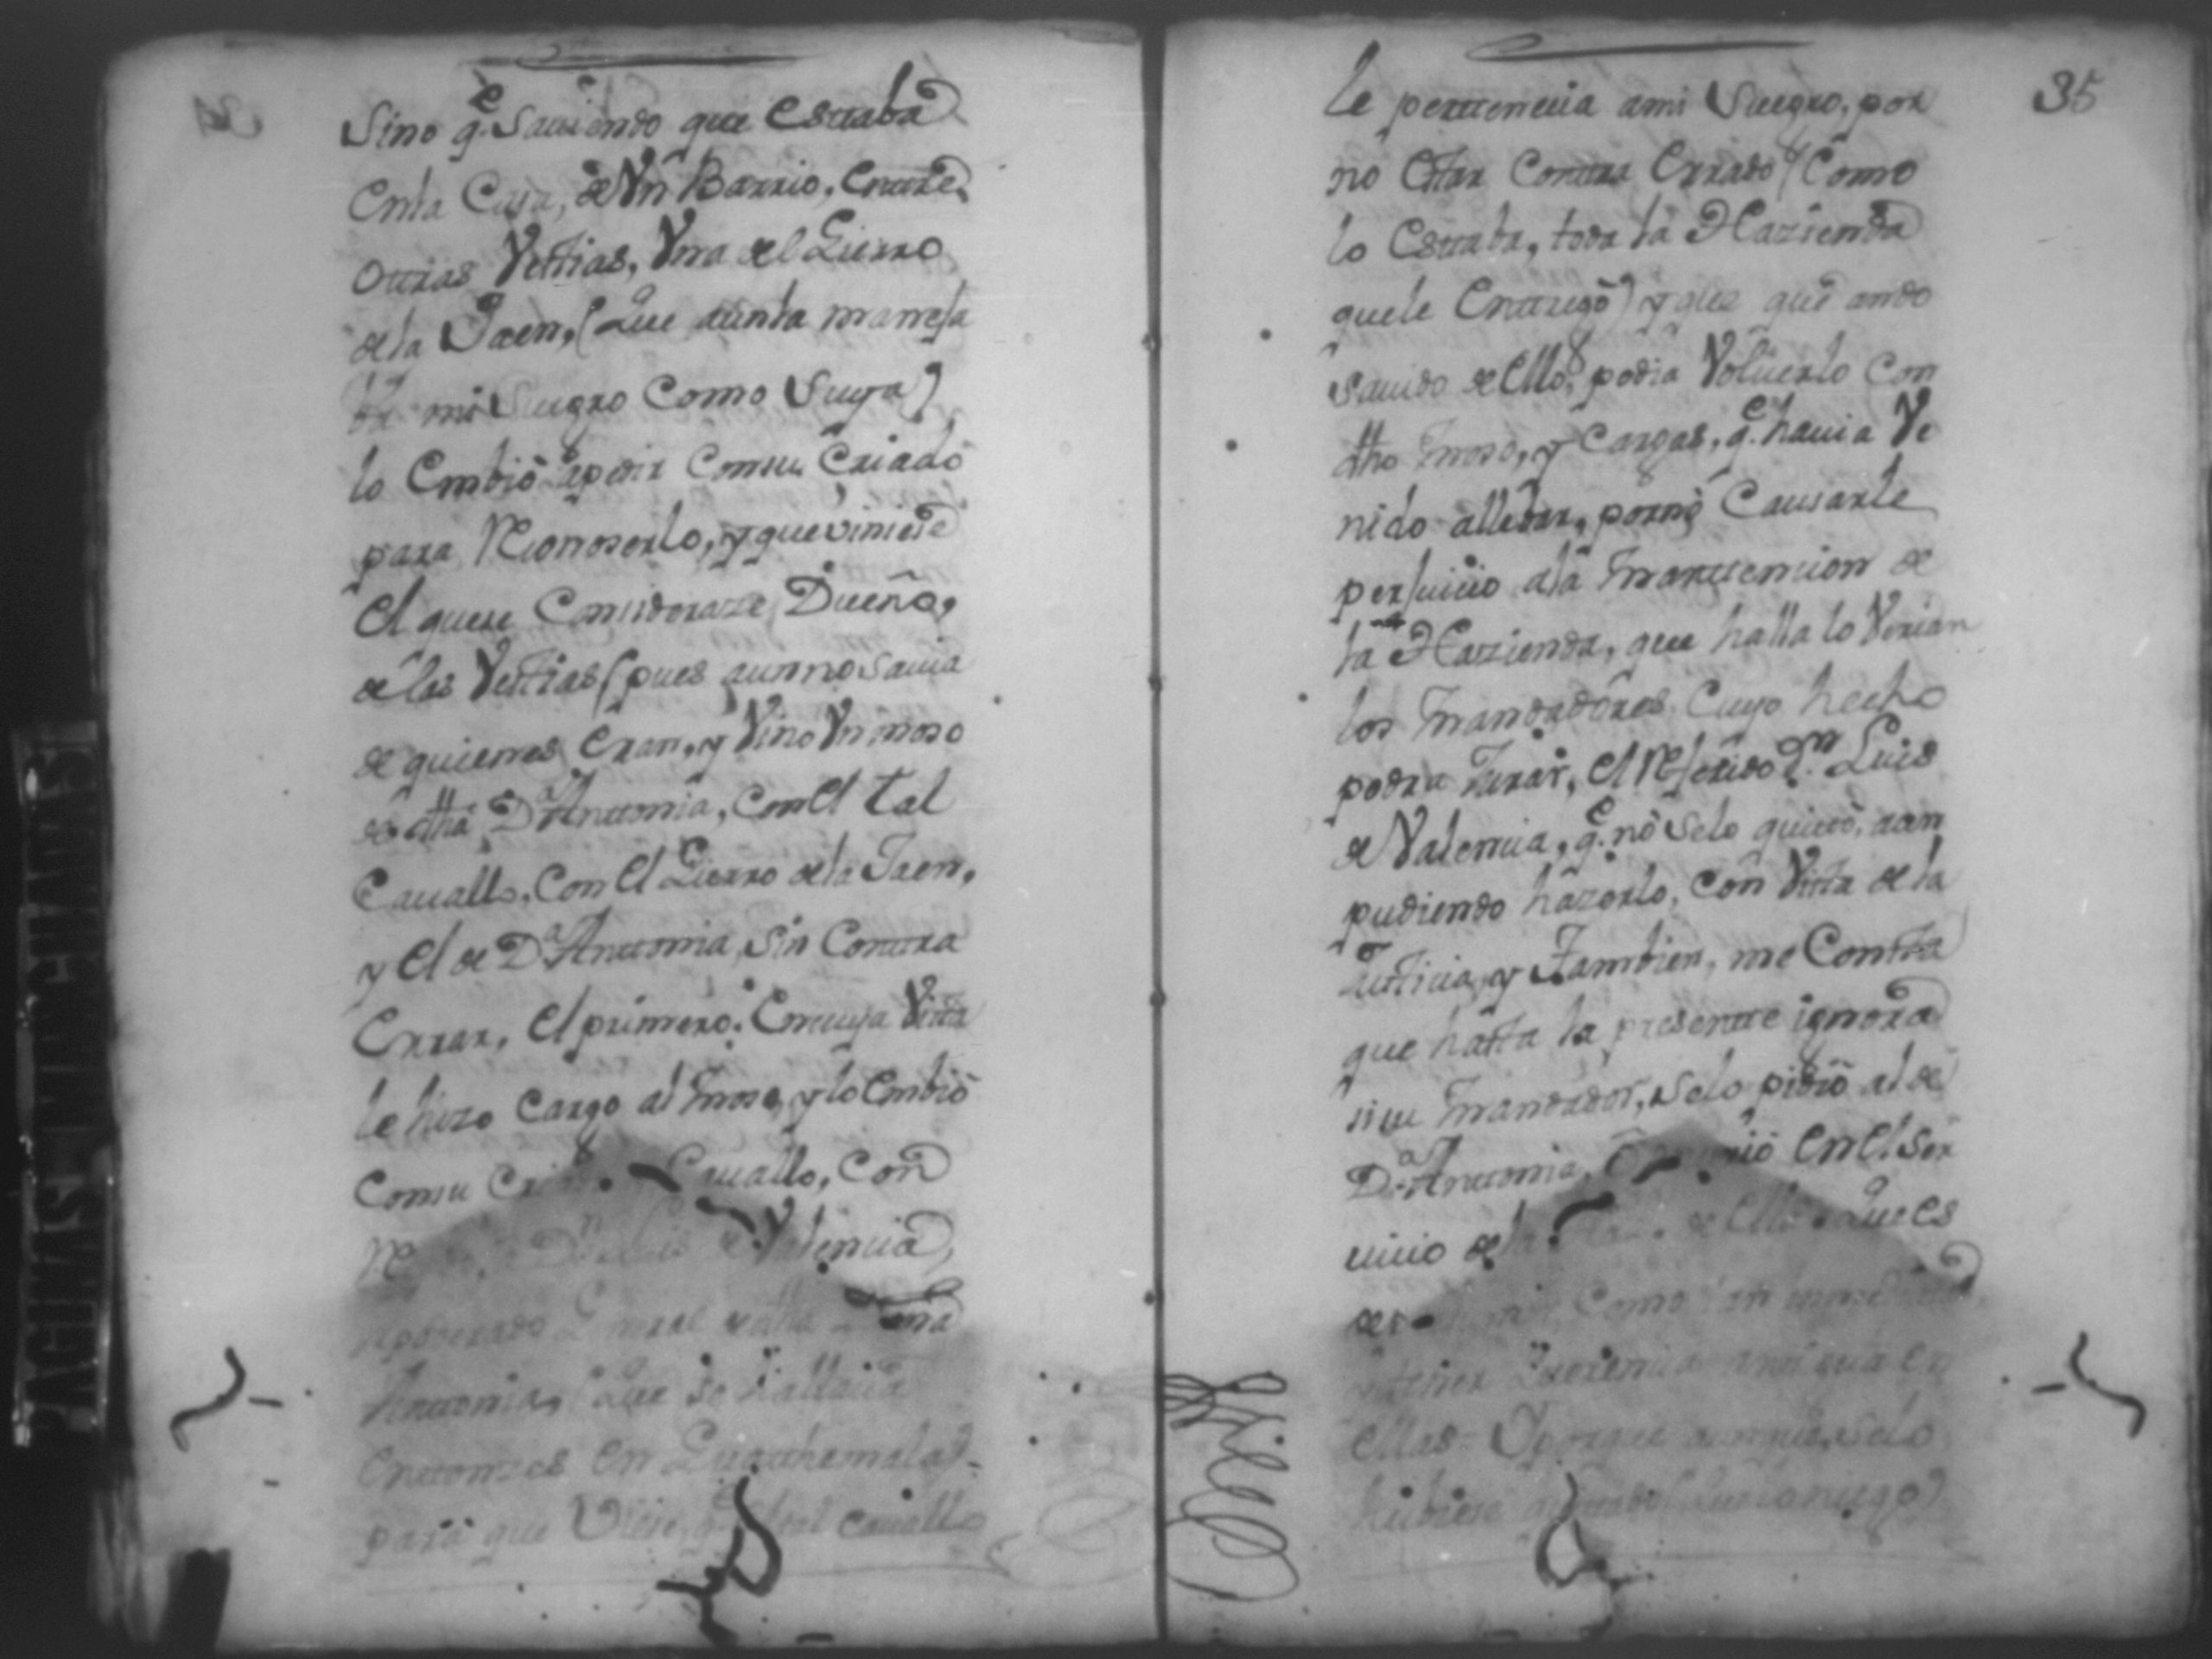 Sino q.e Sauiendo que Estaba
Enla Casa, de Vn Barrio, Entre
Ottras Vestias, Vna del Fierro
dela Jaen, (Que aunla maneja
ba mi Suegro Como Suya)
lo Embió apedir Consu Criado
para Reconoserlo, y queviniese
El quese Consideraze, Dueño,
delas Vestias (pues aunno Sauia
de quienes Eran, y Vino Vn moso
de dha D.a Anttonia, Con El tal
Cauallo, Con El Fierro dela Jaen,
y El de D.a Anttonia, Sin Conttra
Errar, El primero: En cuya Vista
le hizo Cargo al moso, y lo Embió
Consu Cauallo, Con
D.n de Valencia,
Apoderado
Anttonia, (Que se hallaua
Enttonzes En Guatthemala)
para que Viese, q.e El tal Cauallo
35
le perttenecia ami Suegro, por
no Estar Conttra Errado (Como
lo Estaba, toda la Hazienda
quele Enttregó) y que quedando
Sauido de Ello, podia Voluerlo Con
dho moso, y Cargas, q.e hauia Ve
nido alleuar, por no Causarle
perjuicio ala manttencion de
la Hazienda, que halla lo Verian
los mandadores, Cuyo hecho
podra Jurar, El Referido D.n Luis
de Valencia, q.e nó Selo quitó, aun
pudiendo hazerlo, Con Vista de la
Justicia, y Tambien, me Consta
que hasta la presentte ignora
sisu mandador, Selo pidió al de
D.a Anttonia, En El Ser
uicio de la de Ella: Que es
Como
tener antigua en
Ellas: Y porque aunque, Selo
hubiese